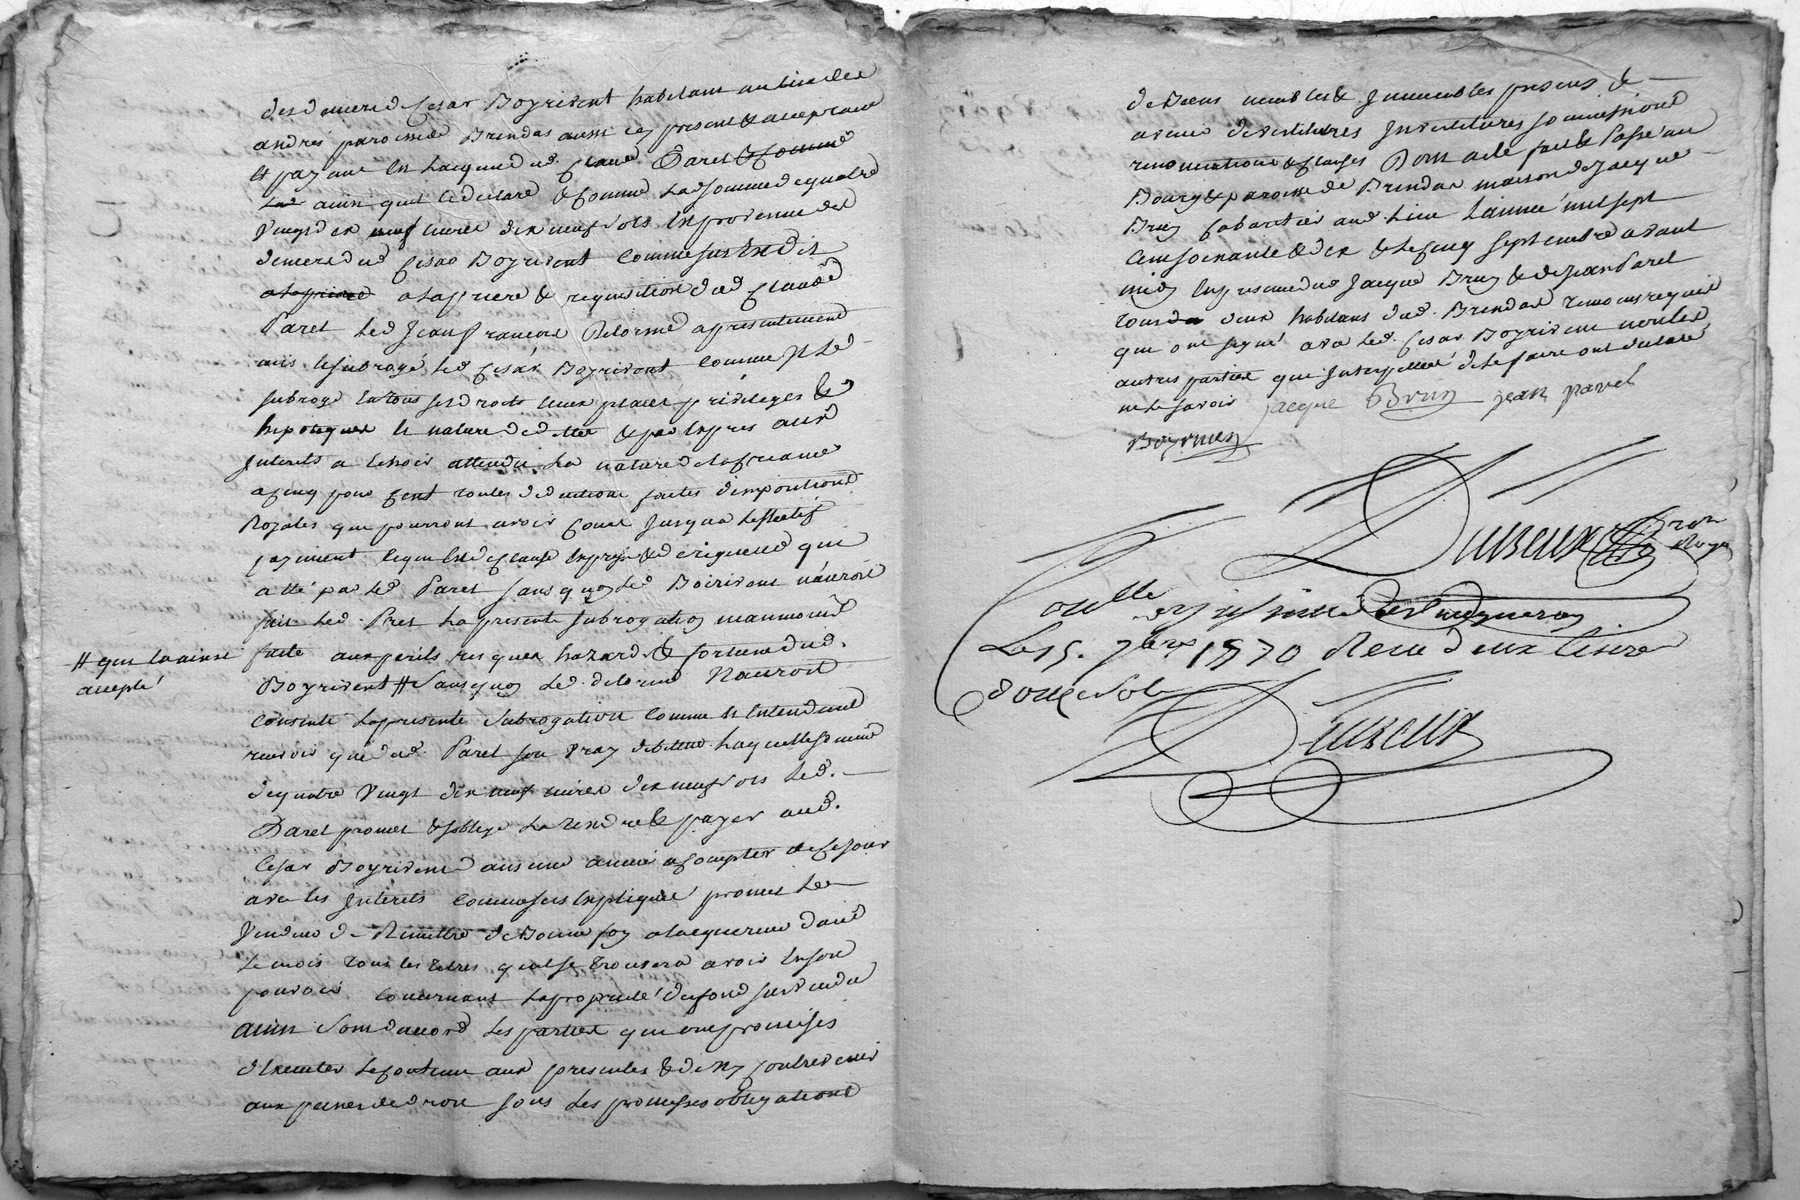 des deniers de Cesar Boyrivent habitant au lieu des
andrés paroisse de Brindas aussi icy present & acceptant
et payant en lacquit dud. Claude Paret & comme
ainsi quil le declare & comme la somme de quatre
vingt dix neuf livres dix neuf sols en provenue des
deniers dud Cesar Boyrivent comme sus est dit
a la priere & requisition dud Claude
Paret led Jean francois Delorme a presentement
mis & subrogé led Cesar Boyrivent comme il led
subroge en tous ses droits lieux places privileges &
hipoteques & nature de dette & par exprés aux
Interets a lavoir attendu la nature de la creance
a cinq pour cent toutes deductions faites d'impositions
Royales qui pourront avoir cours jusqua leffectif
payement lequel de clause expresse & de rigueur qui
a été par led Paret sans quoy led Boirivent n'auroit
fait led. Pret la presente subrogation neanmoins
faite aux perils risques hazards & fortune dud.
# qui la ainsi
accepté
Boyrivent # Sans quoy led. delorme N'auroit
consenti la presente subrogation comme il entend ne
revoir que dud. Paret son vray debiteur laquelle somme
de quatre vingt dix neuf livres dix neuf sols led.
Paret promet & soblige la rendre & payer aud.
Cesar Boyrivent dans une année a compter de ce jour
avec les Interets comme sus expliqué promet le
vendeur de Remettre de bonne foy a lacquereur dans
le mois tous les titres quil se trouvera avoir en son
pouvoir concernant la proprieté du fond sus vendu
ainsi sont daccord les parties qui ont promises
dexecuter le contenu aux presentes & de ny contrevenir
aux peines de droit sous les promesses obligations
de Biens meubles & Immeubles presens &
avenir devestitures Investitures soumissions
renonciations & clauses Dont acte fait & Passé au
Bourg & paroisse de Brindas maison de Jacque
Brun Cabaretier aud. lieu Lannée mil sept
cent soixante & dix & le cinq septembre avant
midy en presence dud Jacque Brun & de Jean Paret
tous deux habitans dud. Brindas temoins requis
qui ont signé avec led. Cesar Boyrivent non les
autres parties qui Interpellés de le faire ont declaré
ne le savoir jacque Brun jean paret
Boyriven
Duseux
Royal
Con.lle et insinué
Le 15. 7bre 1770 Recu deux livres
douze sols
Duseux